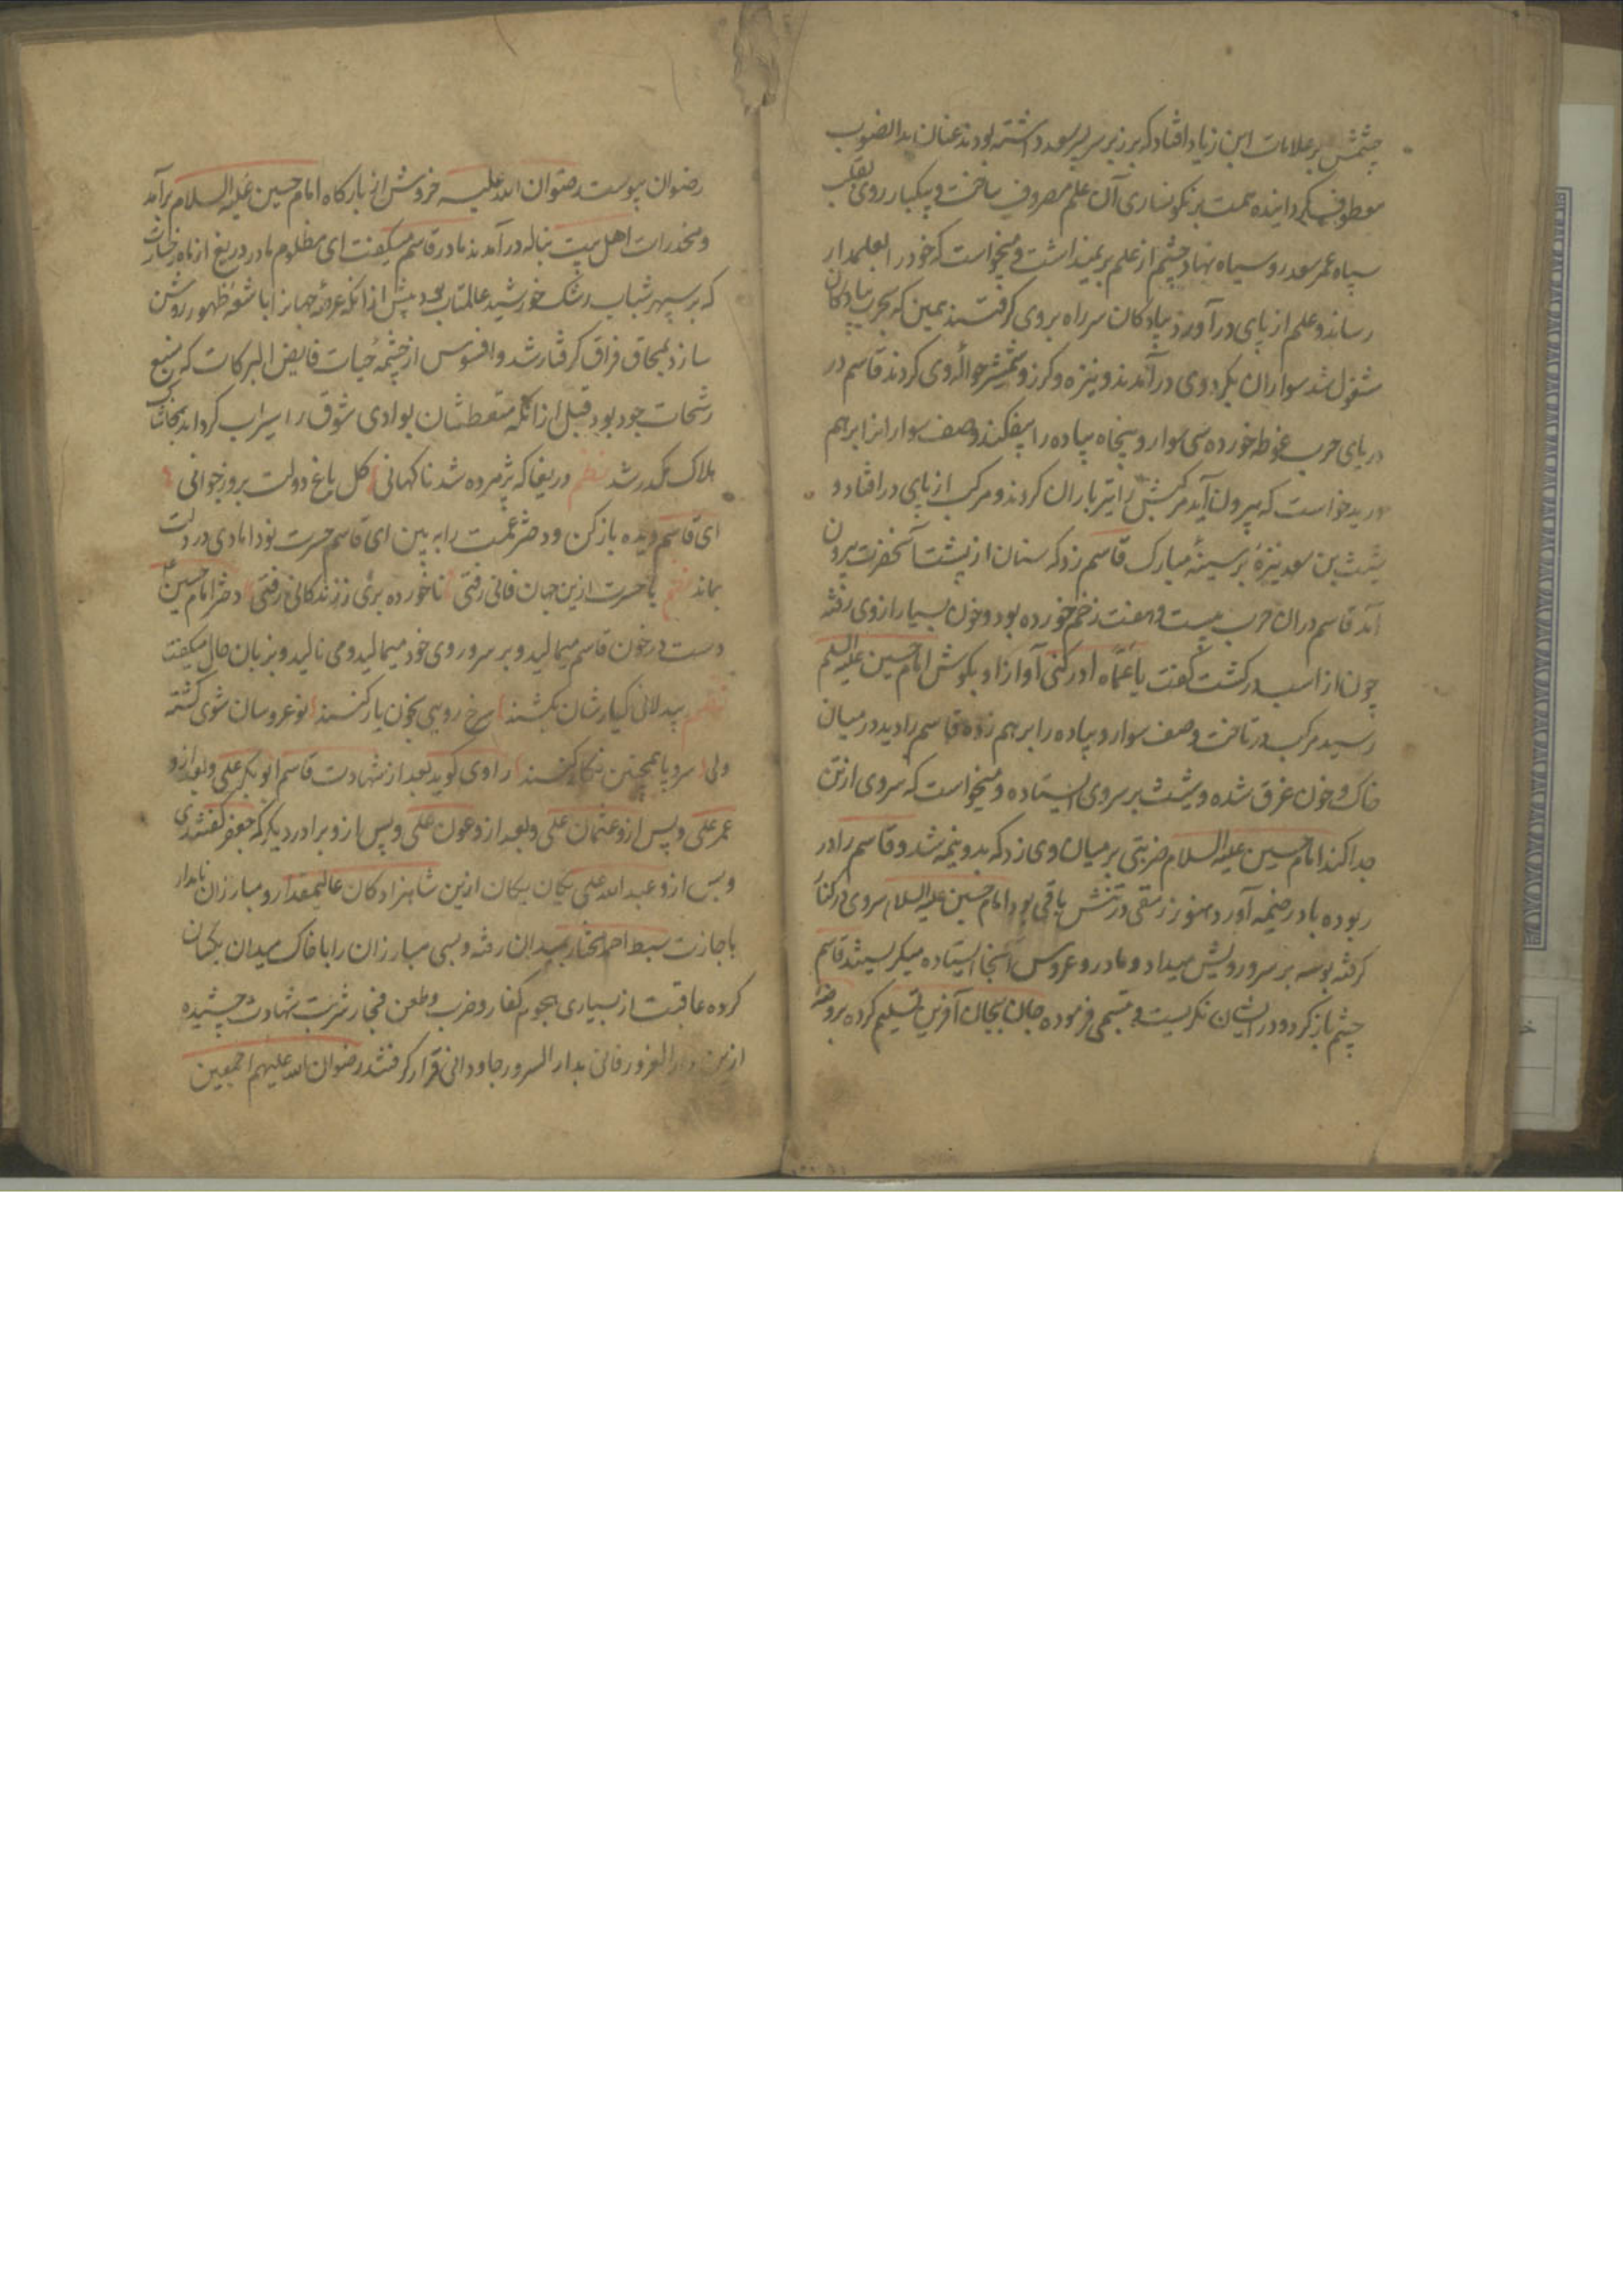 چشمش بر علامات ابن زیاد افتاد که بر زبر سر پسر سعد داشته بودند عنان بدالضوب
معطوف گردانیده همت بر نکونساری آن علم مصروف ساخت و بیکبار روی بقلب
سپاه عمر سعد رو سیاه نهاد چشم از علم بر نمیداشت و میخواست که خود را بعلمدار
رساند و علم از پای درآورد پیادکان سر راه بر وی کرفتند همین که بحرب پیادکان
مشغول شد سواران بکرد وی درآمدند و نیزه و کرز و شمشیر حوالهٔ وی کردند قاسم در
دریای حرب غوطه خورده سی سوار و پنجاه پیاده را بیفکند و صف سواران را برهم
درید خواست که بیرون آید مرکبش را تیر باران کردند و مرکب از پای درافتاد و
شیث بن سعد نیزهٔ بر سینهٔ مبارک قاسم زد که سنان از پشت آنحضرت بیرون
آمد قاسم دران حرب بیست و هفت زخم خورده بود و خون بسیار از وی رفته
چون از اسب درکشت گفت یا عماه ادرکنی آواز او بکوش امام حسین علیه السلم
رسید مرکب در تاخت و صف سوار و پیاده را برهم زده قاسم را دید در میان
خاک و خون غرق شده و شیث بر سر وی ایستاده و میخواست که سر وی از تن
جدا کند امام حسین علیه السلام ضربتی بر میان وی زد که بدو نیمه شد و قاسم را در
ربوده با در خیمه آورد هنوز رمقی در تنش باقی بود امام حسین علیه السلام سر وی در کنار
کرفته بوسه بر سر و رویش میداد و مادر و عروس آنجا ایستاده میکریستند قاسم
چشم باز کرد و در ایشان نکریست و تبسمی فرموده جان بجان آفرین تسلیم کرده بروضهٔ
رضوان پیوست رضوان الله علیه خروش از بارکاه امام حسین علیه السلام برآمد
و مخدرات اهل بیت بناله درآمدند مادر قاسم میکفت ای مظلوم مادر دریغ از ماه رخسارت
که بر سپهر شباب رشک خورشید عالمتاب بود پیش از انکه عرصهٔ جهانرا باشعهٔ ظهور روشن
سازد بمحاق فراق کرفتار شد و افسوس از چشمهٔ حیات فایض البرکات که منبع
رشحات جود بود قبل از انکه متعطشان بوادی شوق را سیراب کرداند بخاشاک
هلاک مکدر شد نظم دریغا که پژمرده شد ناکهانی کل باغ دولت بروز جوانی
ای قاسم دیده باز کن و دختر عمت را به بین ای قاسم حسرت نو دامادی در دلت
بماند نظم با حسرت ازین جهان فانی رفتی ناخورده بری ز زندکانی رفتی دختر امام حسین
دست در خون قاسم میمالید و بر سر و روی خود میمالید و می نالید و بزبان حال میکفت
نظم بیدلانی کیارشان بکشند سرخ رویی بخون یار کنند نو عروسان شوی کشته
ولی سر و پا همچنین نکار کنند راوی کوید بعد از شهادت قاسم ابوبکر علی و بعد ازو
عمر علی و پس ازو عثمان علی و بعد ازو عون علی و پس ازو برادر دیکر که جعفر کفتندی
و پس ازو عبدالله علی یکان یکان ازین شاهزادکان عالیمقدار و مبارزان نامدار
باجازت سبط احمد مختار بمیدان رفته و بسی مبارزان را با خاک میدان یکسان
کرده عاقبت از بسیاری هجوم کفار و ضرب و طعن فجار شربت شهادت چشیده
ازین دار الغرور فانی بدار السرور جاودانی قرار کرفتند رضوان الله علیهم اجمعین